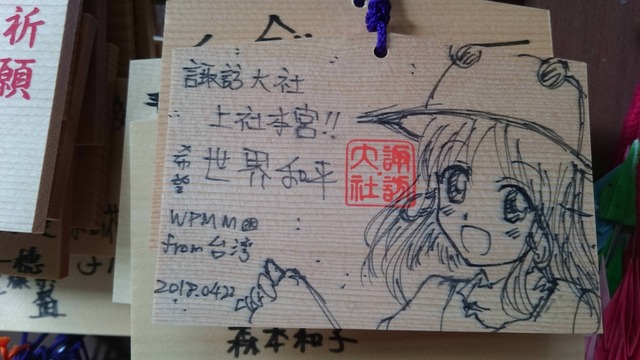 祈願
諏訪大社
上社本宮!!
希望 世界和平
諏訪大社
WPMM
from 台湾
2018.0422
森本和子